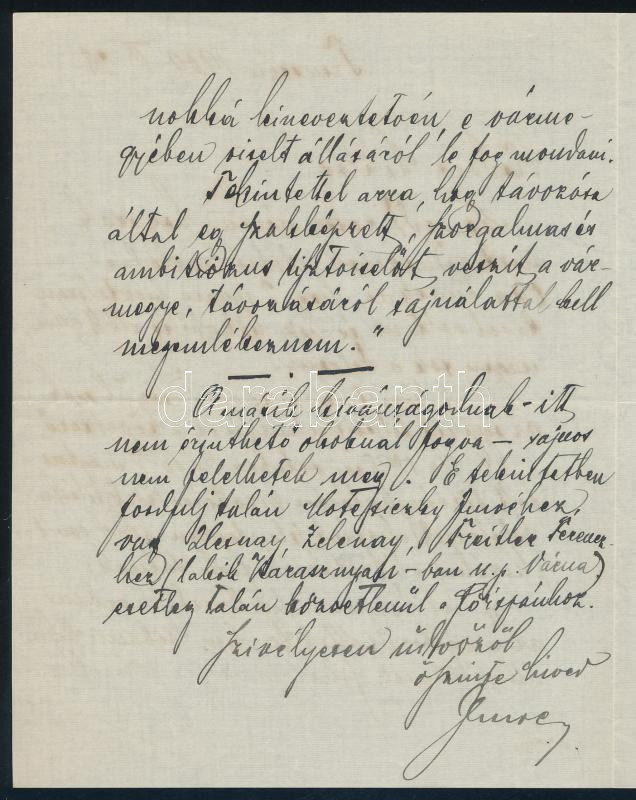 nokká kineveztetvén, e várme-
gyében viselt állásáról le fog mondani.
Tekintettel arra, hogy távozása
által egy szakképzett, szorgalmas és
ambitiózus tisztviselőt veszít a vár-
megye, távozásáról sajnálattal kell
megemlékeznem."
A másik kívánságodnak - itt
nem érinthető okoknál fogva - sajnos
nem felelhetek meg. E tekintetben
fordulj talán Motesiczky Imréhez,
vagy Zelenay,
hez (lakik - ban u. p. Várna)
esetleg talán közvetlenül a Főispánhoz.
Szivélyesen üdvözöl
őszinte hived
Imre
darabanth